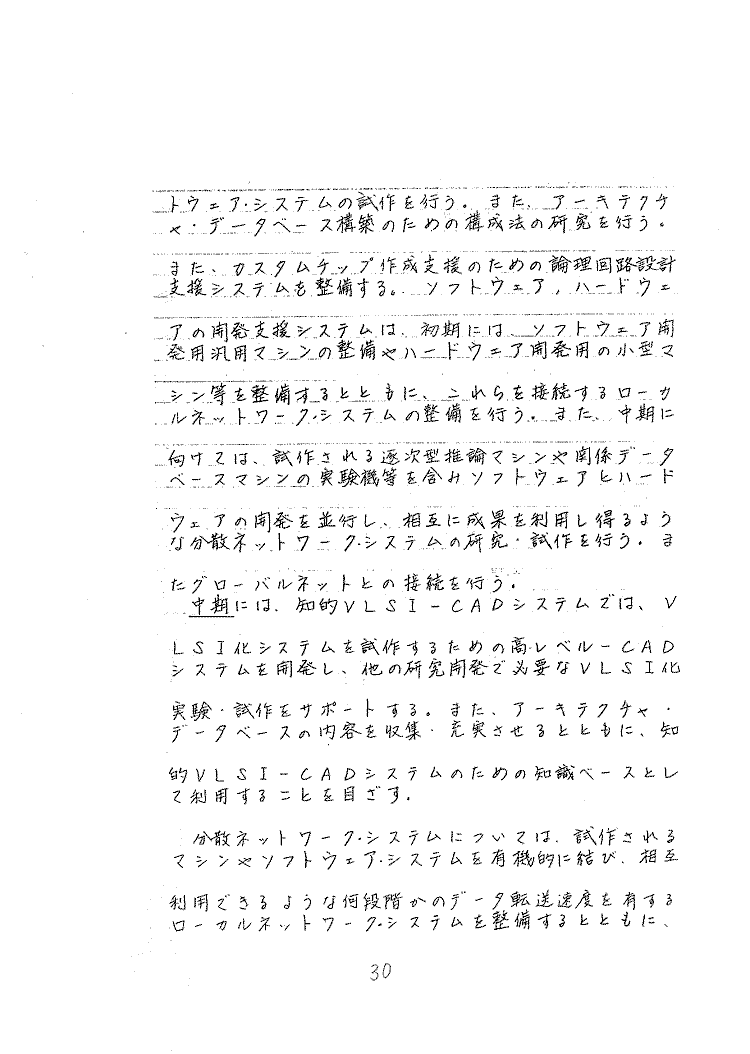 トウェア・システムの試作を行う。また、アーキテクチ
ャ・データベース構築のための構成法の研究を行う。
また、カスタムチップ作成支援のための論理回路設計
支援システムを整備する。ソフトウェア,ハードウェ
アの開発支援システムは、初期には、ソフトウェア開
発用汎用マシンの整備やハードウェア開発用の小型マ
シン等を整備するとともに、これらを接続するローカ
ルネットワーク・システムの整備を行う。また、中期に
向けては、試作される逐次型推論マシンや関係データ
ベースマシンの実験機等を含みソフトウェアとハード
ウェアの開発を並行し、相互に成果を利用し得るよう
な分散ネットワーク・システムの研究・試作を行う。ま
たグローバルネットとの接続を行う。
中期には、知的VLSI-CADシステムでは、V
LSI化システムを試作するための高レベル-CAD
システムを開発し、他の研究開発で必要なVLSI化
実験・試作をサポートする。また、アーキテクチャ・
データベースの内容を収集・充実させるとともに、知
的VLSI-CADシステムのための知識ベースとし
て利用することを目ざす。
分散ネットワーク・システムについては、試作される
マシンやソフトウェア・システムを有機的に結び、相互
利用できるような何段階かのデータ転送速度を有する
ローカルネットワーク・システムを整備するとともに、
30